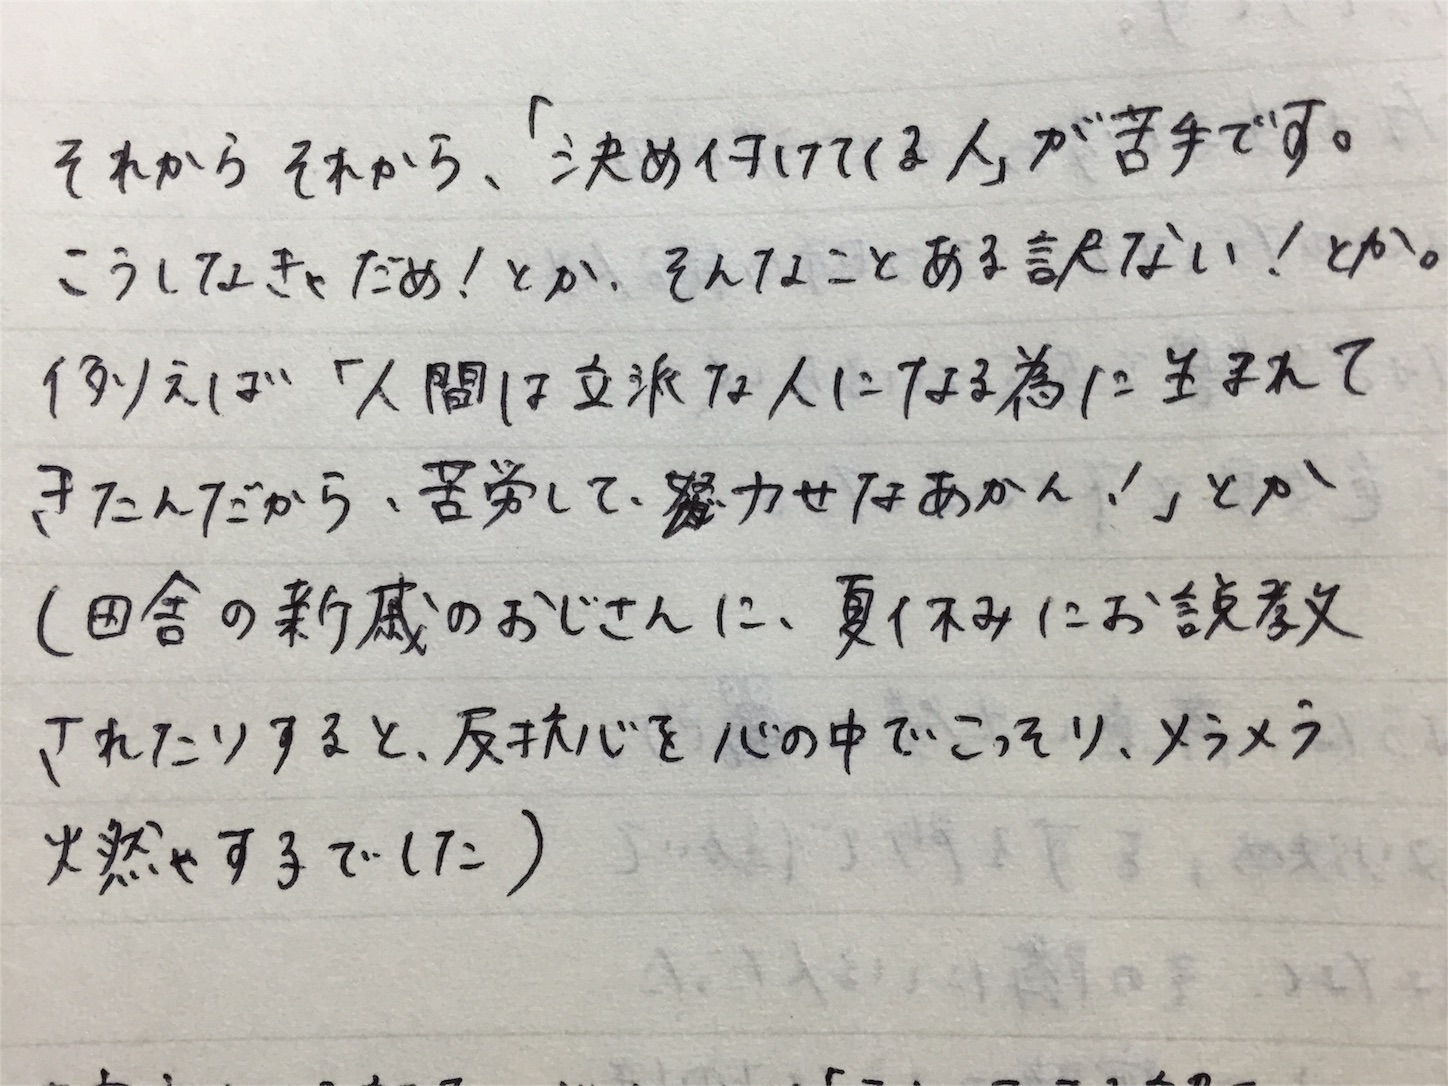 それからそれから、「決め付けてくる人」が苦手です。
こうしなきゃだめ！とか、そんなことある訳ない！とか。
例えば「人間は立派な人になる為に生まれて
きたんだから、苦労して、努力せなあかん！」とか
（田舎の親戚のおじさんに、夏休みにお説教
されたりすると、反抗心を心の中でこっそり、メラメラ
燃やす子でした）